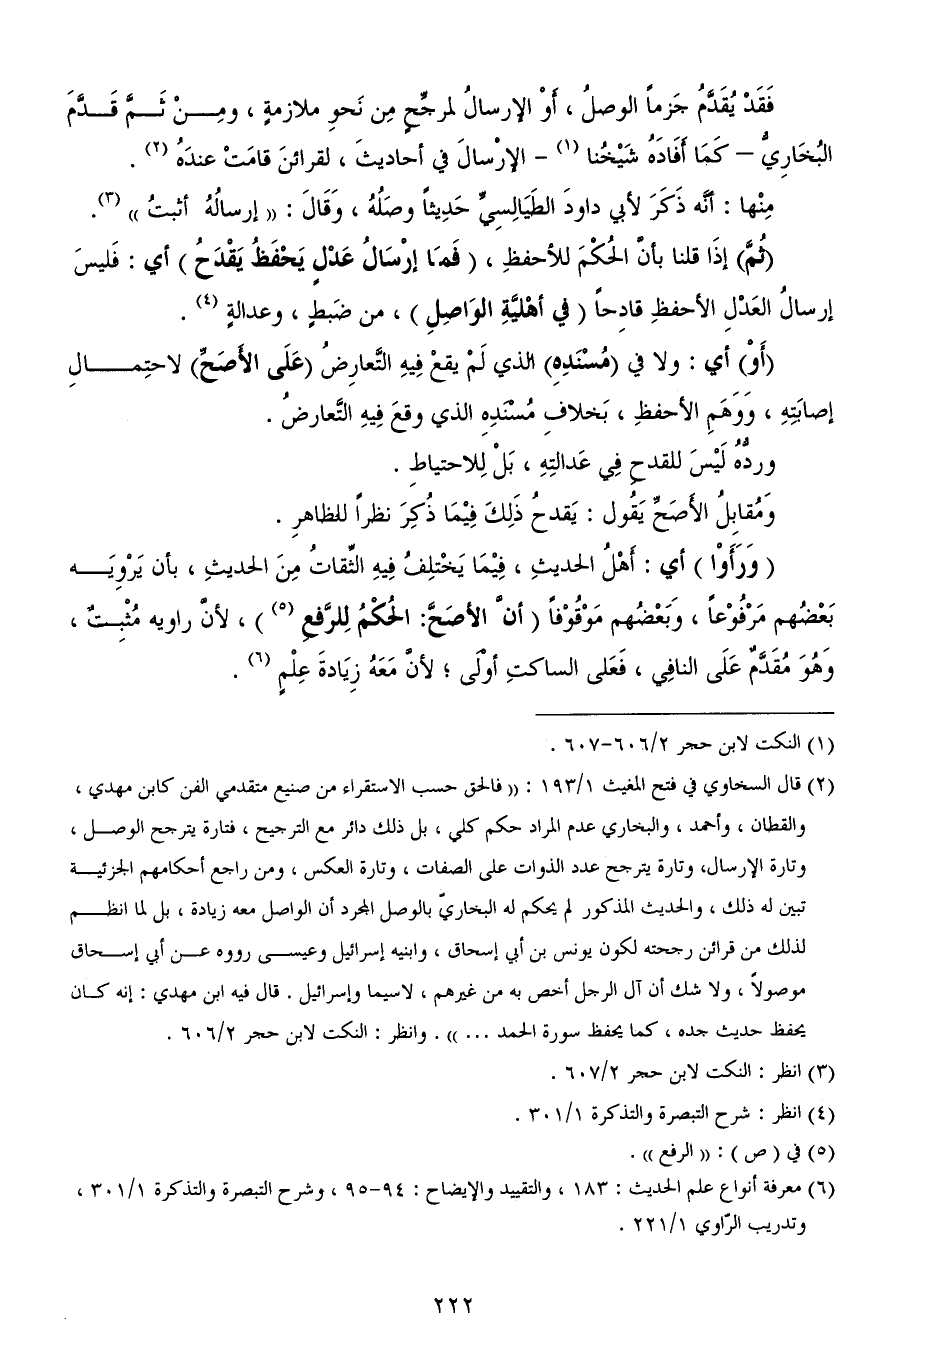 فَقَدْ يُقَدَّمُ جَزماً الوصلُ ، أَوْ الإرسالُ لمرجِّحٍ مِن نَحوِ ملازمةٍ ، ومِـــنْ ثَـــمَّ قَـــدَّمَ
البُخَارِيُّ – كَمَا أَفَادَهُ شَيْخُنا (١) – الإرْسالَ في أحاديثَ ، لقرائنَ قامَتْ عندَهُ (٢) .
مِنْها : أنَّه ذَكَرَ لأبي داودَ الطَيالِسيِّ حَدِيثاً وصَلَهُ ، وَقَالَ : « إرسالُهُ أثبتُ » (٣).
(ثُمَّ) إذَا قلنا بأنَّ الحُكْمَ للأحفظِ ، ( فَمَا إرْسَالُ عَدْلٍ يَحْفَظُ يَقْدَحُ ) أي : فَليسَ
إرسالُ العَدْلِ الأحفظِ قادِحاً ( في أهْلِيَّةِ الوَاصِلِ ) ، من ضَبطٍ ، وعدالةٍ (٤) .
(أَوْ) أي : ولا في (مُسْنَدِهِ) الذي لَمْ يقعْ فِيهِ التَّعارضُ (عَلَى الأَصَحِّ) لاحتِمـــــالِ
إصابَتِهِ ، وَوَهَمِ الأحفظِ ، بَخلافِ مُسْنَدِه الذي وقعَ فِيهِ التَّعارضُ .
وردُّهُ لَيْسَ للقدحِ فِي عَدالتِهِ ، بَلْ لِلاحتياطِ .
وَمُقابلُ الأصَحِّ يَقُول : يَقدحُ ذَلِكَ فِيْمَا ذُكِرَ نظراً للظاهرِ .
( وَرَأَوْا ) أي : أَهْلُ الحديثِ ، فِيْمَا يَخْتلِفُ فِيهِ الثِّقاتُ مِنَ الحديثِ ، بأن يَرْوِيَـــه
بَعْضُهم مَرْفُوْعاً ، وَبَعْضُهم مَوْقُوْفاً ( أنَّ الأصَحَّ: الحُكْمُ لِلرَّفعِ (٥) ) ، لأنَّ راويه مُثْبِتٌ ،
وَهُوَ مُقَدَّمٌ عَلَى النافِي ، فَعَلى الساكتِ أولَى ؛ لأنَّ مَعَهُ زِيَادةَ عِلْمٍ (٦) .
(١) النكت لابن حجر ٦٠٦/٢-٦٠٧ .
(٢) قال السخاوي في فتح المغيث ١٩٣/١ : « فالحق حسب الاستقراء من صنيع متقدمي الفن كابن مهدي ،
والقطان ، وأحمد ، والبخاري عدم المراد حكم كلي ، بل ذلك دائر مع الترجيح ، فتارة يترجح الوصــل ،
وتارة الإرسال، وتارة يترجح عدد الذوات على الصفات ، وتارة العكس ، ومن راجع أحكامهم الجزئيـــة
تبين له ذلك ، والحديث المذكور لم يحكم له البخاريّ بالوصل المجرد أن الواصل معه زيادة ، بل لما انظـــم
لذلك من قرائن رجحته لكون يونس بن أبي إسحاق ، وابنيه إسرائيل وعيســى رووه عـــن أبي إســـحاق
موصولاً ، ولا شك أن آل الرجل أخص به من غيرهم ، لاسيما وإسرائيل . قال فيه ابن مهدي : إنه كـان
يحفظ حديث جده ، كما يحفظ سورة الحمد ... » . وانظر : النكت لابن حجر ٦٠٦/٢ .
(٣) انظر : النكت لابن حجر ٦٠٧/٢ .
(٤) انظر : شرح التبصرة والتذكرة ٣٠١/١ .
(٥) في ( ص ) : « الرفع » .
(٦) معرفة أنواع علم الحديث : ١٨٣ ، والتقييد والإيضاح : ٩٤-٩٥ ، وشرح التبصرة والتذكرة ٣٠١/١ ،
وتدريب الرّاوي ٢٢١/١ .
٢٢٢